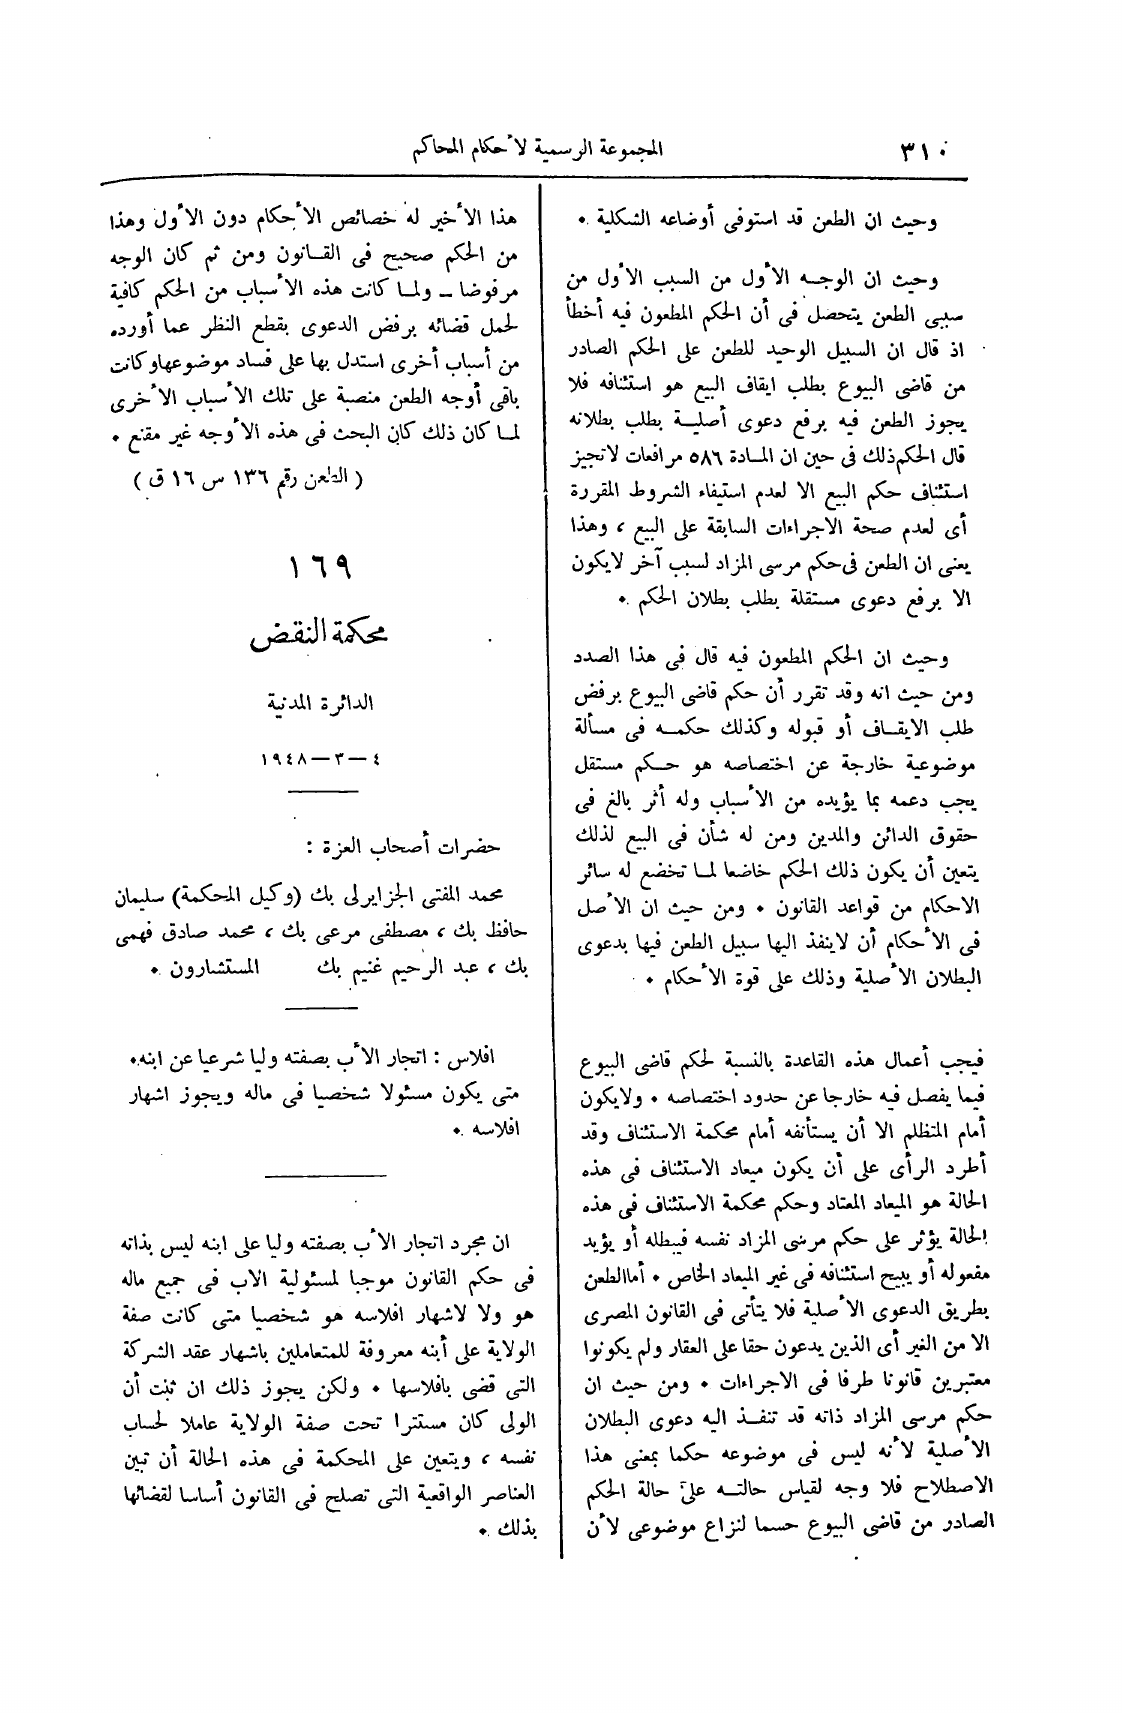 ٣١٠
المجموعة الرسمية لأحكام المحاكم
وحيث ان الطعن قد استوفى أوضاعه الشكلية .
وحيث ان الوجه الأول من السبب الأول من
سببى الطعن يتحصل فى أن الحكم المطعون فيه أخطأ
اذ قال ان السبيل الوحيد للطعن على الحكم الصادر
من قاضى البيوع بطلب ايقاف البيع هو استئنافه فلا
يجوز الطعن فيه برفع دعوى أصلية بطلب بطلانه
قال الحكم ذلك فى حين ان المادة ٥٨٦ مرافعات لاتجيز
استئناف حكم البيع الا لعدم استيفاء الشروط المقررة
أى لعدم صحة الاجراءات السابقة على البيع ، وهذا
يعنى ان الطعن فى حكم مرسى المزاد لسبب آخر لايكون
الا برفع دعوى مستقلة بطلب بطلان الحكم .
وحيث ان الحكم المطعون فيه قال فى هذا الصدد
ومن حيث انه وقد تقرر أن حكم قاضى البيوع برفض
طلب الايقاف أو قبوله وكذلك حكمه فى مسألة
موضوعية خارجة عن اختصاصه هو حكم مستقل
يجب دعمه بما يؤيده من الأسباب وله أثر بالغ فى
حقوق الدائن والمدين ومن له شأن فى البيع لذلك
يتعين أن يكون ذلك الحكم خاضعا لما تخضع له سائر
الاحكام من قواعد القانون . ومن حيث ان الأصل
فى الأحكام أن لاينفذ اليها سبيل الطعن فيها بدعوى
البطلان الأصلية وذلك على قوة الأحكام .
فيجب أعمال هذه القاعدة بالنسبة لحكم قاضى البيوع
فيما يفصل فيه خارجا عن حدود اختصاصه . ولايكون
أمام المتظلم الا أن يستأنفه أمام محكمة الاستئناف وقد
أطرد الرأى على أن يكون ميعاد الاستئناف فى هذه
الحالة هو الميعاد المعتاد وحكم محكمة الاستئناف فى هذه
الحالة يؤثر على حكم مرسى المزاد نفسه فيبطله أو يؤيد
مفعوله أو يبيح استئنافه فى غير الميعاد الخاص . أما الطعن
بطريق الدعوى الأصلية فلا يتأتى فى القانون المصرى
الا من الغير أى الذين يدعون حقا على العقار ولم يكونوا
معتبرين قانونا طرفا فى الاجراءات . ومن حيث ان
حكم مرسى المزاد ذاته قد تنفذ اليه دعوى البطلان
الأصلية لأنه ليس فى موضوعه حكما بمعنى هذا
الاصطلاح فلا وجه لقياس حالته على حالة الحكم
الصادر من قاضى البيوع حسما لنزاع موضوعى لأن
هذا الأخير له خصائص الأحكام دون الأول وهذا
من الحكم صحيح فى القانون ومن ثم كان الوجه
مرفوضا ـ ولما كانت هذه الأسباب من الحكم كافية
لحمل قضائه برفض الدعوى بقطع النظر عما أورده
من أسباب أخرى استدل بها على فساد موضوعها وكانت
باقى أوجه الطعن منصبة على تلك الأسباب الأخرى
لما كان ذلك كان البحث فى هذه الأوجه غير مقنع .
( الطعن رقم ١٣٦ س ١٦ ق )
١٦٩
محكمة النقض
الدائرة المدنية
٤ — ٣ — ١٩٤٨
حضرات أصحاب العزة :
محمد المفتى الجزايرلى بك (وكيل المحكمة) سليمان
حافظ بك ، مصطفى مرعى بك ، محمد صادق فهمى
بك ، عبد الرحيم غنيم بك المستشارون .
افلاس : اتجار الأب بصفته وليا شرعيا عن ابنه.
متى يكون مسئولا شخصيا فى ماله ويجوز اشهار
افلاسه .
ان مجرد اتجار الأب بصفته وليا على ابنه ليس بذاته
فى حكم القانون موجبا لمسئولية الاب فى جميع ماله
هو ولا لاشهار افلاسه هو شخصيا متى كانت صفة
الولاية على أبنه معروفة للمتعاملين باشهار عقد الشركة
التى قضى بافلاسها . ولكن يجوز ذلك ان ثبت أن
الولى كان مستترا تحت صفة الولاية عاملا لحساب
نفسه ، ويتعين على المحكمة فى هذه الحالة أن تبين
العناصر الواقعية التى تصلح فى القانون أساسا لقضائها
بذلك .